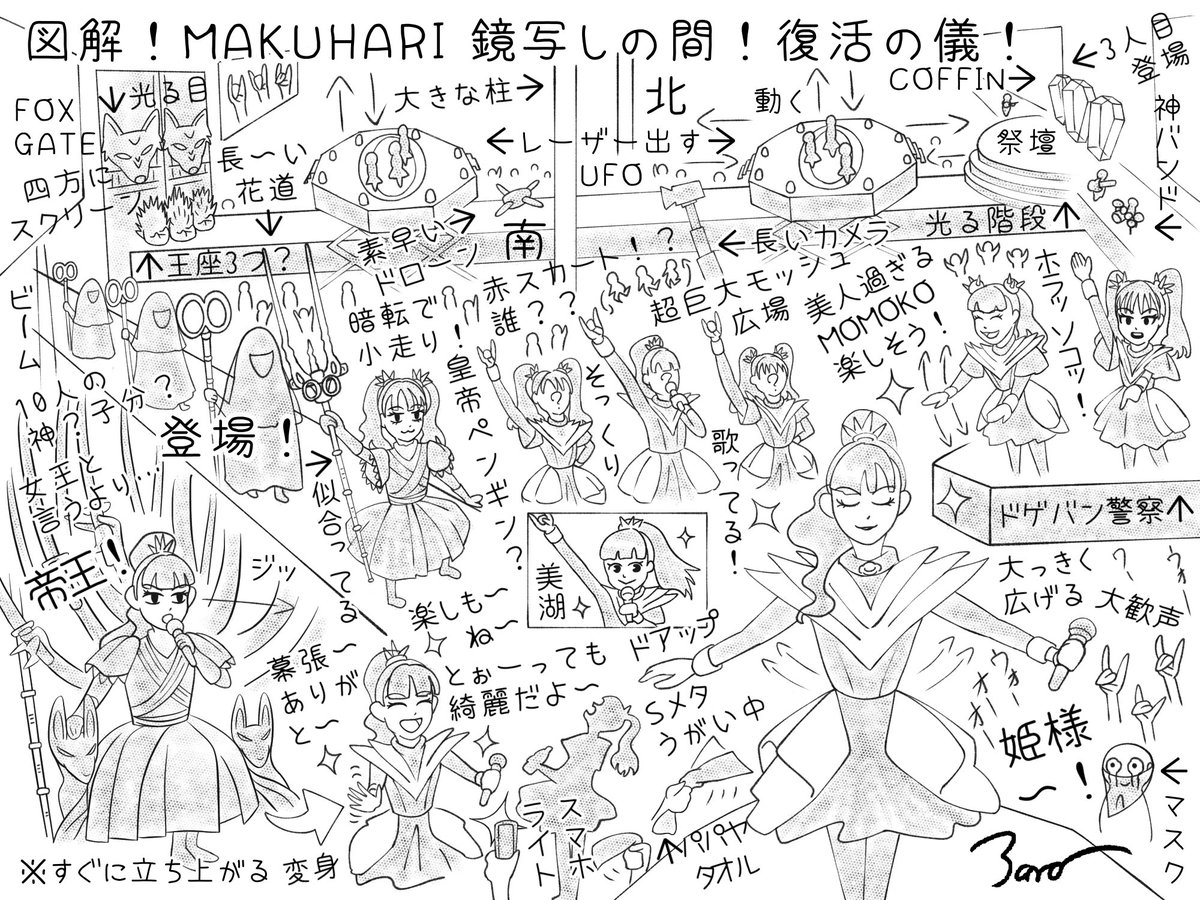 図解！MAKUHARI 鏡写しの間！復活の儀！
FOX
GATE
↓光る目
四方に
スクリーン
長〜い
花道
↓
大きな柱→
北
←レーザー出す→
UFO
動く
COFFIN→
←3人目
登場
祭壇
神バンド
↑王座3つ？
素早い→
ドローン
南
←長いカメラ
光る階段↑
ビーム
10人？の
神？子分？
女王と
言うより…
帝王！
登場！
→似合ってる
暗転で
小走り！
皇帝ペンギン？
赤スカート！？
誰？？
そっくり
歌ってる！
超巨大モッシュ
広場
美人過ぎる
MOMOKO
楽しそう！
ホラッソコッ！
ドゲバン警察↑
ジッ
美湖
ドアップ
幕張〜
ありが
と〜
楽しも〜
ね〜
とぉーっても
綺麗だよ〜
Sメタ
うがい中
大っきく
広げる
大歓声
ウォー
ウォー
オオー
姫様
〜！
スマホ
ライト
↑パパヤ
タオル
←マスク
※すぐに立ち上がる
変身